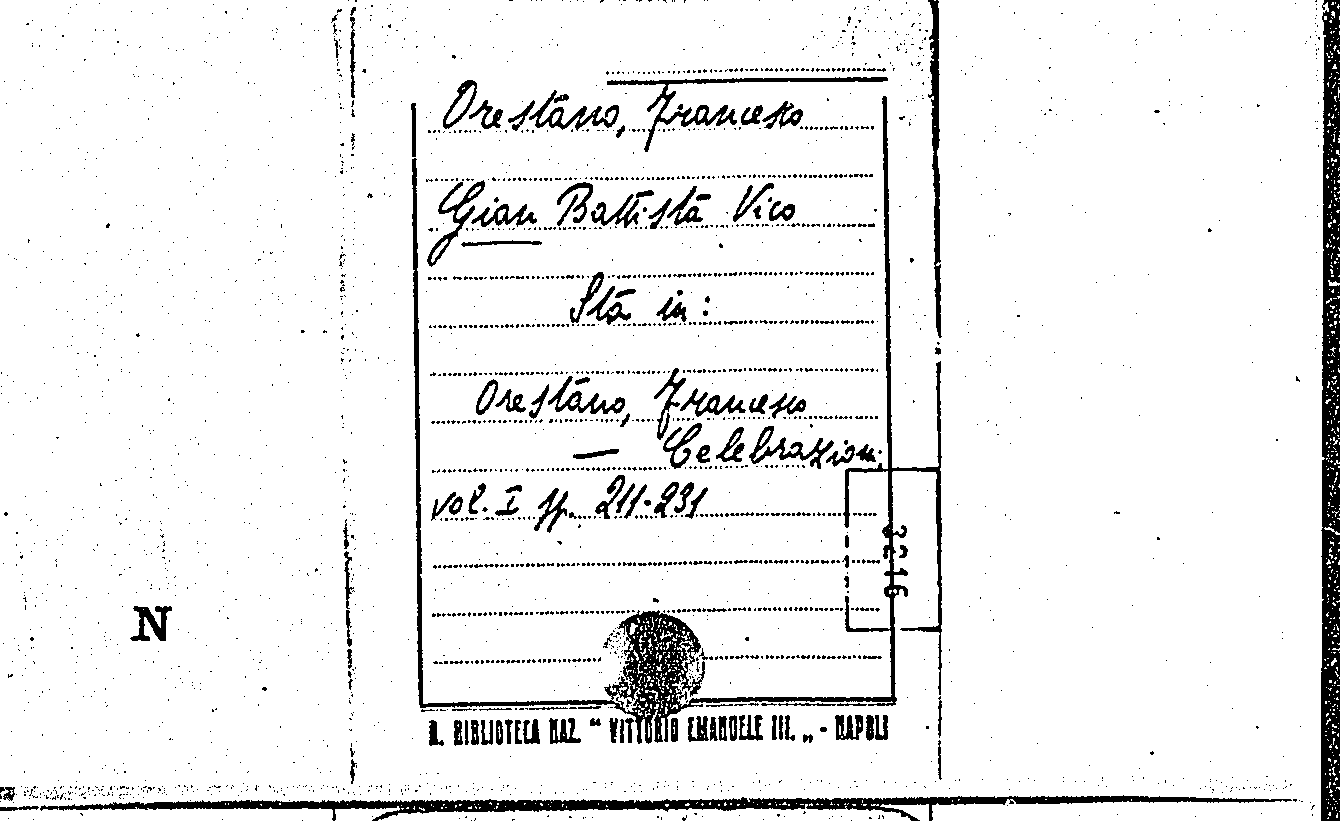 Orestano, Francesco
Gian Battista Vico
Sta in:
Orestano, Francesco
— Celebrazioni
vol. I pp. 211-231
3216
N
R. BIBLIOTECA NAZ. “ VITTORIO EMANUELE III. „ - NAPOLI